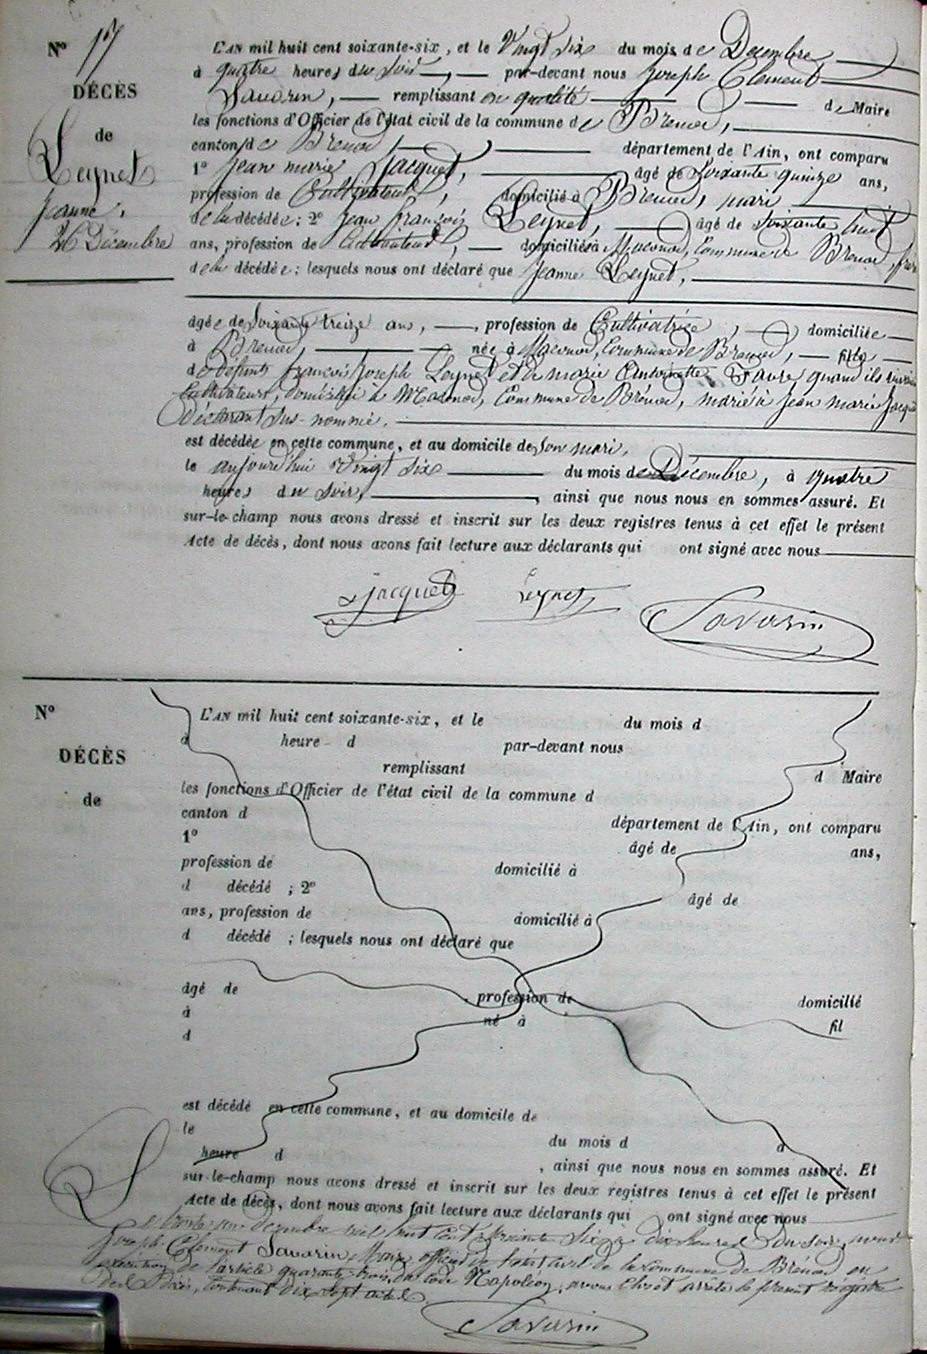 N° 17
DÉCÈS
de
Leynet
Jeanne.
26 Décembre
L'AN mil huit cent soixante-six, et le Vingt six du mois de Décembre
à quatre heures du soir, par-devant nous Joseph Clément
Savarin, remplissant en qualité de Maire
les fonctions d'Officier de l'état civil de la commune de Brenod,
canton de Brenod département de l'Ain, ont comparu
1° Jean marie Jacquet, âgé de Soixante quinze ans,
profession de Cultivateur, domicilié à Brenod, mari
de la décédée; 2° Jean françois Leynet, âgé de soixante huit
ans, profession de Cultivateur, domiciliés à Macconod, Commune de Brenod, frère
de la décédée; lesquels nous ont déclaré que Jeanne Leynet,
âgée de Soixante treize ans, profession de Cultivatrice, domiciliée
à Brenod, née à Macconod, Commune de Brenod, fille
de défunts françois Joseph Leynet et de marie Antoinette Favre, quand ils vivaient
Cultivateurs, domiciliés à Macconod, Commune de Brénod, mariée à Jean marie Jacquet
Déclarant sus-nommé.
est décédée en cette commune, et au domicile de son mari,
le aujourd'hui Vingt six du mois de Décembre, à quatre
heures du soir, ainsi que nous nous en sommes assuré. Et
sur-le-champ nous avons dressé et inscrit sur les deux registres tenus à cet effet le présent
Acte de décès, dont nous avons fait lecture aux déclarants qui ont signé avec nous
Jacquet Leynet Savarin
N°
DÉCÈS
de
L'AN mil huit cent soixante-six, et le du mois d
à heure d par-devant nous
remplissant d Maire
les fonctions d'Officier de l'état civil de la commune d
canton d département de l'Ain, ont comparu
1° âgé de ans,
profession de domicilié à
d décédé ; 2° âgé de
ans, profession de domicilié à
d décédé ; lesquels nous ont déclaré que
âgé de , profession de domicilié
à né à fil
d
est décédé en cette commune, et au domicile de
le du mois d à
heure d , ainsi que nous nous en sommes assuré. Et
sur-le-champ nous avons dressé et inscrit sur les deux registres tenus à cet effet le présent
Acte de décès, dont nous avons fait lecture aux déclarants qui ont signé avec nous
Le trente un décembre mil huit cent soixante six à dix heures du soir, nous
Joseph Clément Savarin Maire officier de l'état civil de la commune de Brenod en
exécution de l'article quarante trois du Code Napoléon, avons Clos et arrêté le présent registre
de Décès, contenant dix sept actes
Savarin